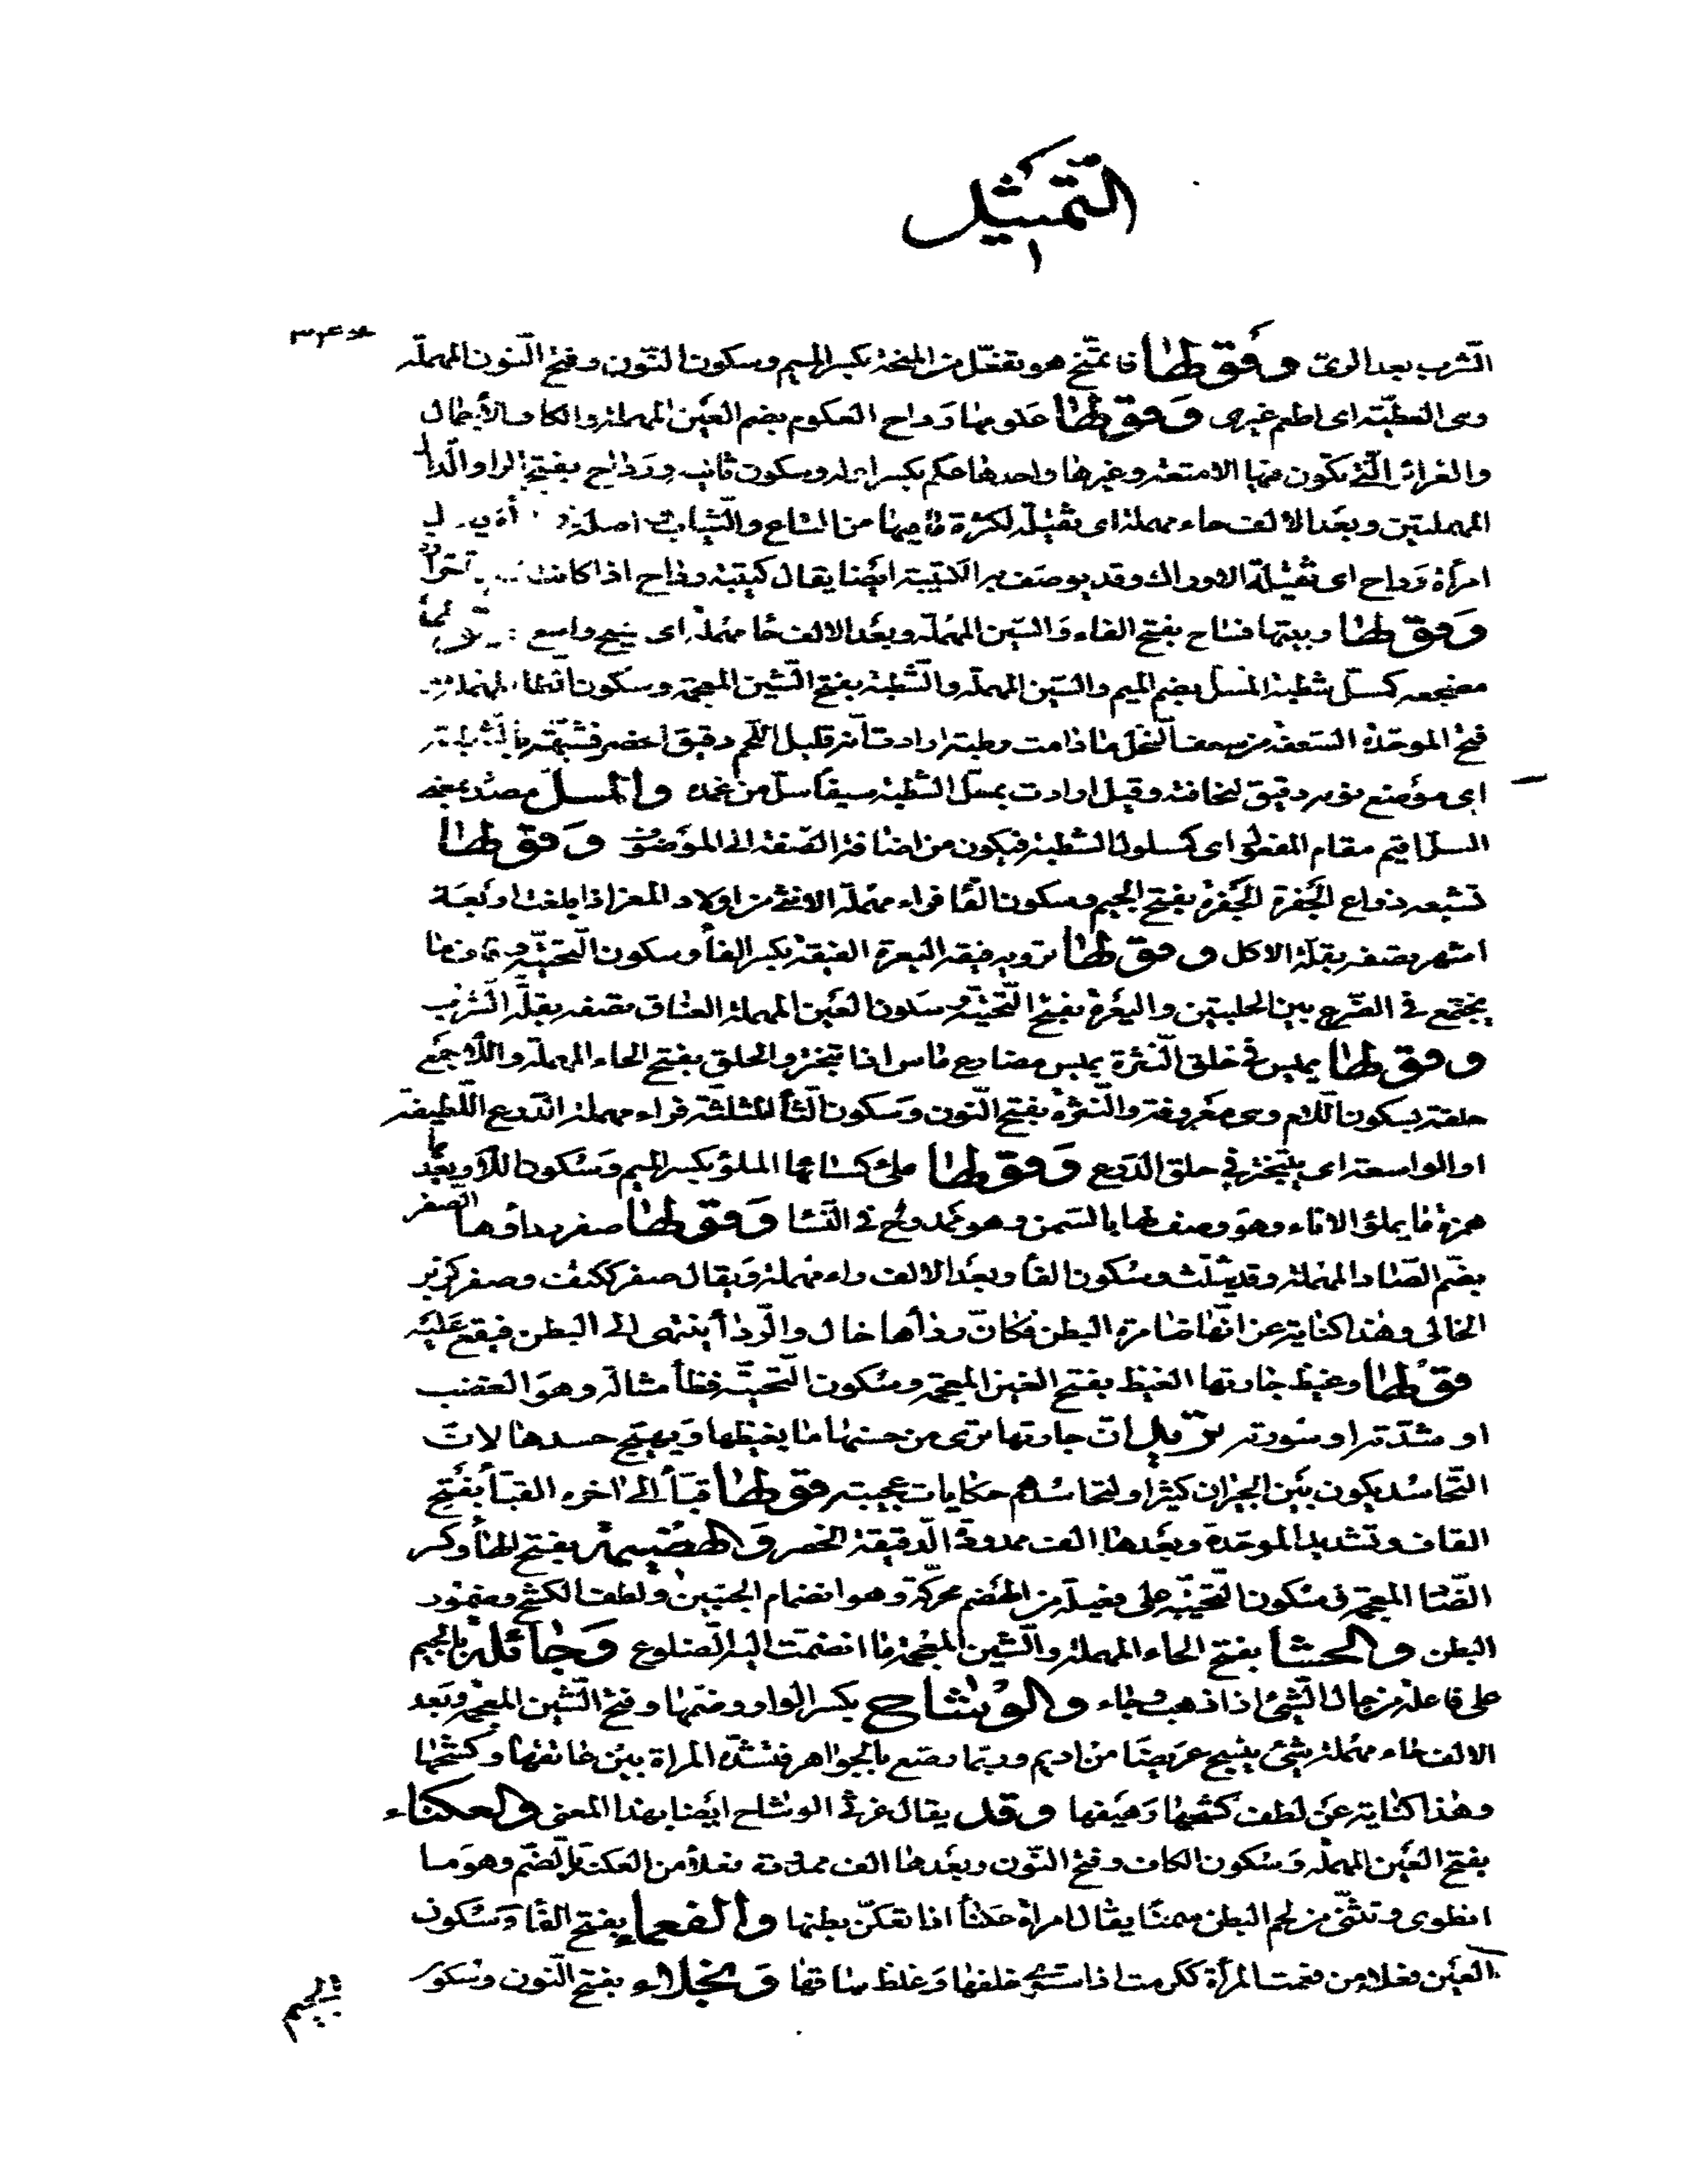 التمثيل
١
الشرب بعد الري وقولها فاتمنح هو تفعّل من المنحة بكسر الميم وسكون النون وفتح النون المهملة
وهى العطيّة اى اطعم غيرى وقولها عكومها رداح العكوم بضم العين المهملة والكاف الأحمال
والغرائر التى تكون فيها الامتعة وغيرها واحدها عكم بكسر اوله وسكون ثانيه ورداح بفتح الرا والدال
المهملتين وبعد الالف حاء مهملة اى ثقيلة لكثرة ما فيها من المتاع والثياب اصله
امرأة رداح اى ثقيلة الاوراك وقد يوصف به الكتيبة ايضا يقال كتيبة رداح اذا كانت
وقولها وبيتها فساح بفتح الفاء والسين المهملة وبعد الالف حا مهملة اى فسيح واسع
مضجعه كمسل شطبة المسل بضم الميم والسين المهملة والشطبة بفتح الشين المعجمة وسكون الطا المهملة
فتح الموحدة السعفة من سعف النخل ما دامت رطبة ارادت أنه قليل اللحم دقيق الخصر فشبهته بالشطبة
اى موضع نومه دقيق لنحافته وقيل ارادت بمسل الشطبة سيفا سل من غمده والمسل مصدر بمعنى
السل اقيم مقام المفعول اى كمسلول الشطبة فيكون من اضافة الصفة الى الموصوف وقولها
تشبعه ذراع الجفرة الجفرة بفتح الجيم وسكون الفا فراء مهملة الانثى من اولاد المعز اذا بلغت اربعة
اشهر تصفه بقلة الاكل وقولها ترويه فيقة اليعرة الفيقة بكسر الفا وسكون التحتيّة وقاف ما
يجتمع فى الضرع بين الحلبتين واليعرة بفتح التحتية وسكون العين المهملة العناق تصفه بقلة الشرب
وقولها يميس فى حلق النثرة يميس مضارع ماس اذا تبختر والحلق بفتح الحاء المهملة واللام جمع
حلقة بسكون اللام وهى معروفة والنثرة بفتح النون وسكون الثا المثلثة فراء مهملة الدرع اللطيفة
او الواسعة اى يتبختر فى حلق الدرع وقولها ملئ كسائها الملؤ بكسر الميم وسكون اللام وبعدها
همزة ما يملؤ الاناء وهو وصف لها بالسمن وهو ممدوح فى النسا وقولها صفر رداؤها الصفر
بضم الصاد المهملة وقد يثلث وسكون الفا وبعد الالف راء مهملة ويقال صفر ككتف وصفر كزبر
الخالى وهذا كناية عن انها ضامرة البطن فكان رداءها خال والرداء ينتهى الى البطن فيقع عليه
قولها وغيظ جارتها الغيظ بفتح الغين المعجمة وسكون التحتية فظا مشالة وهو الغضب
او شدته او سورته تريد ان جارتها ترى من حسنها ما يغيظها ويهيج حسدها لان
التحاسد يكون بين الجيران كثيرا ولتحاسدهم حكايات عجيبة قولها قباء الى اخره القباء بفتح
القاف وتشديد الموحدة وبعدها الف ممدودة الدقيقة الخصر والهضيمة بفتح الها وكسر
الضا المعجمة وسكون التحتية على فعيلة من الهضم محركة وهو انضمام الجنبين ولطف الكشح وضمور
البطن والحشا بفتح الحاء المهملة والشين المعجمة ما انضمت اليه الضلوع وجائلة بالجيم
على فاعلة من جال الشئ اذا ذهب وجاء والوشاح بكسر الواو وضمها وفتح الشين المعجمة وبعد
الالف حاء مهملة شئ ينسج عريضا من اديم وربما رصع بالجواهر فتشده المراة بين عاتقها وكشحها
وهذا كناية عن لطف كشحها وهيفها وقد يقال غرثى الوشاح ايضا بهذا المعنى والعكناء
بفتح العين المهملة وسكون الكاف وفتح النون وبعدها الف ممدودة فعلاء من العكنة بالضم وهو ما
انطوى وتثنى من لحم البطن سمنا يقال امرأة عكناء اذا تعكن بطنها والفعماء بفتح الفا وسكون
العين فعلاء من فعمت المرأة ككرمت اذا استوى خلقها وغلظ ساقها ونجلاء بفتح النون وسكون
الجيم